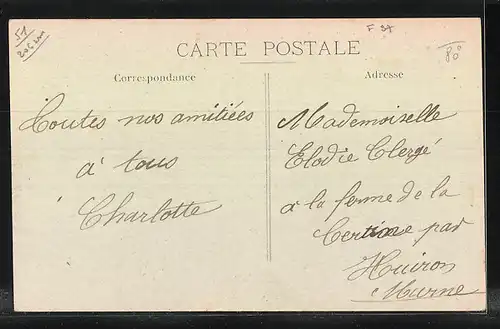 51
F 37
CARTE POSTALE
80
Correspondance
Adresse
Toutes nos amitiées
à tous
Charlotte
Mademoiselle
Elodie Clergé
a la ferme de la
par
Huiron
Marne